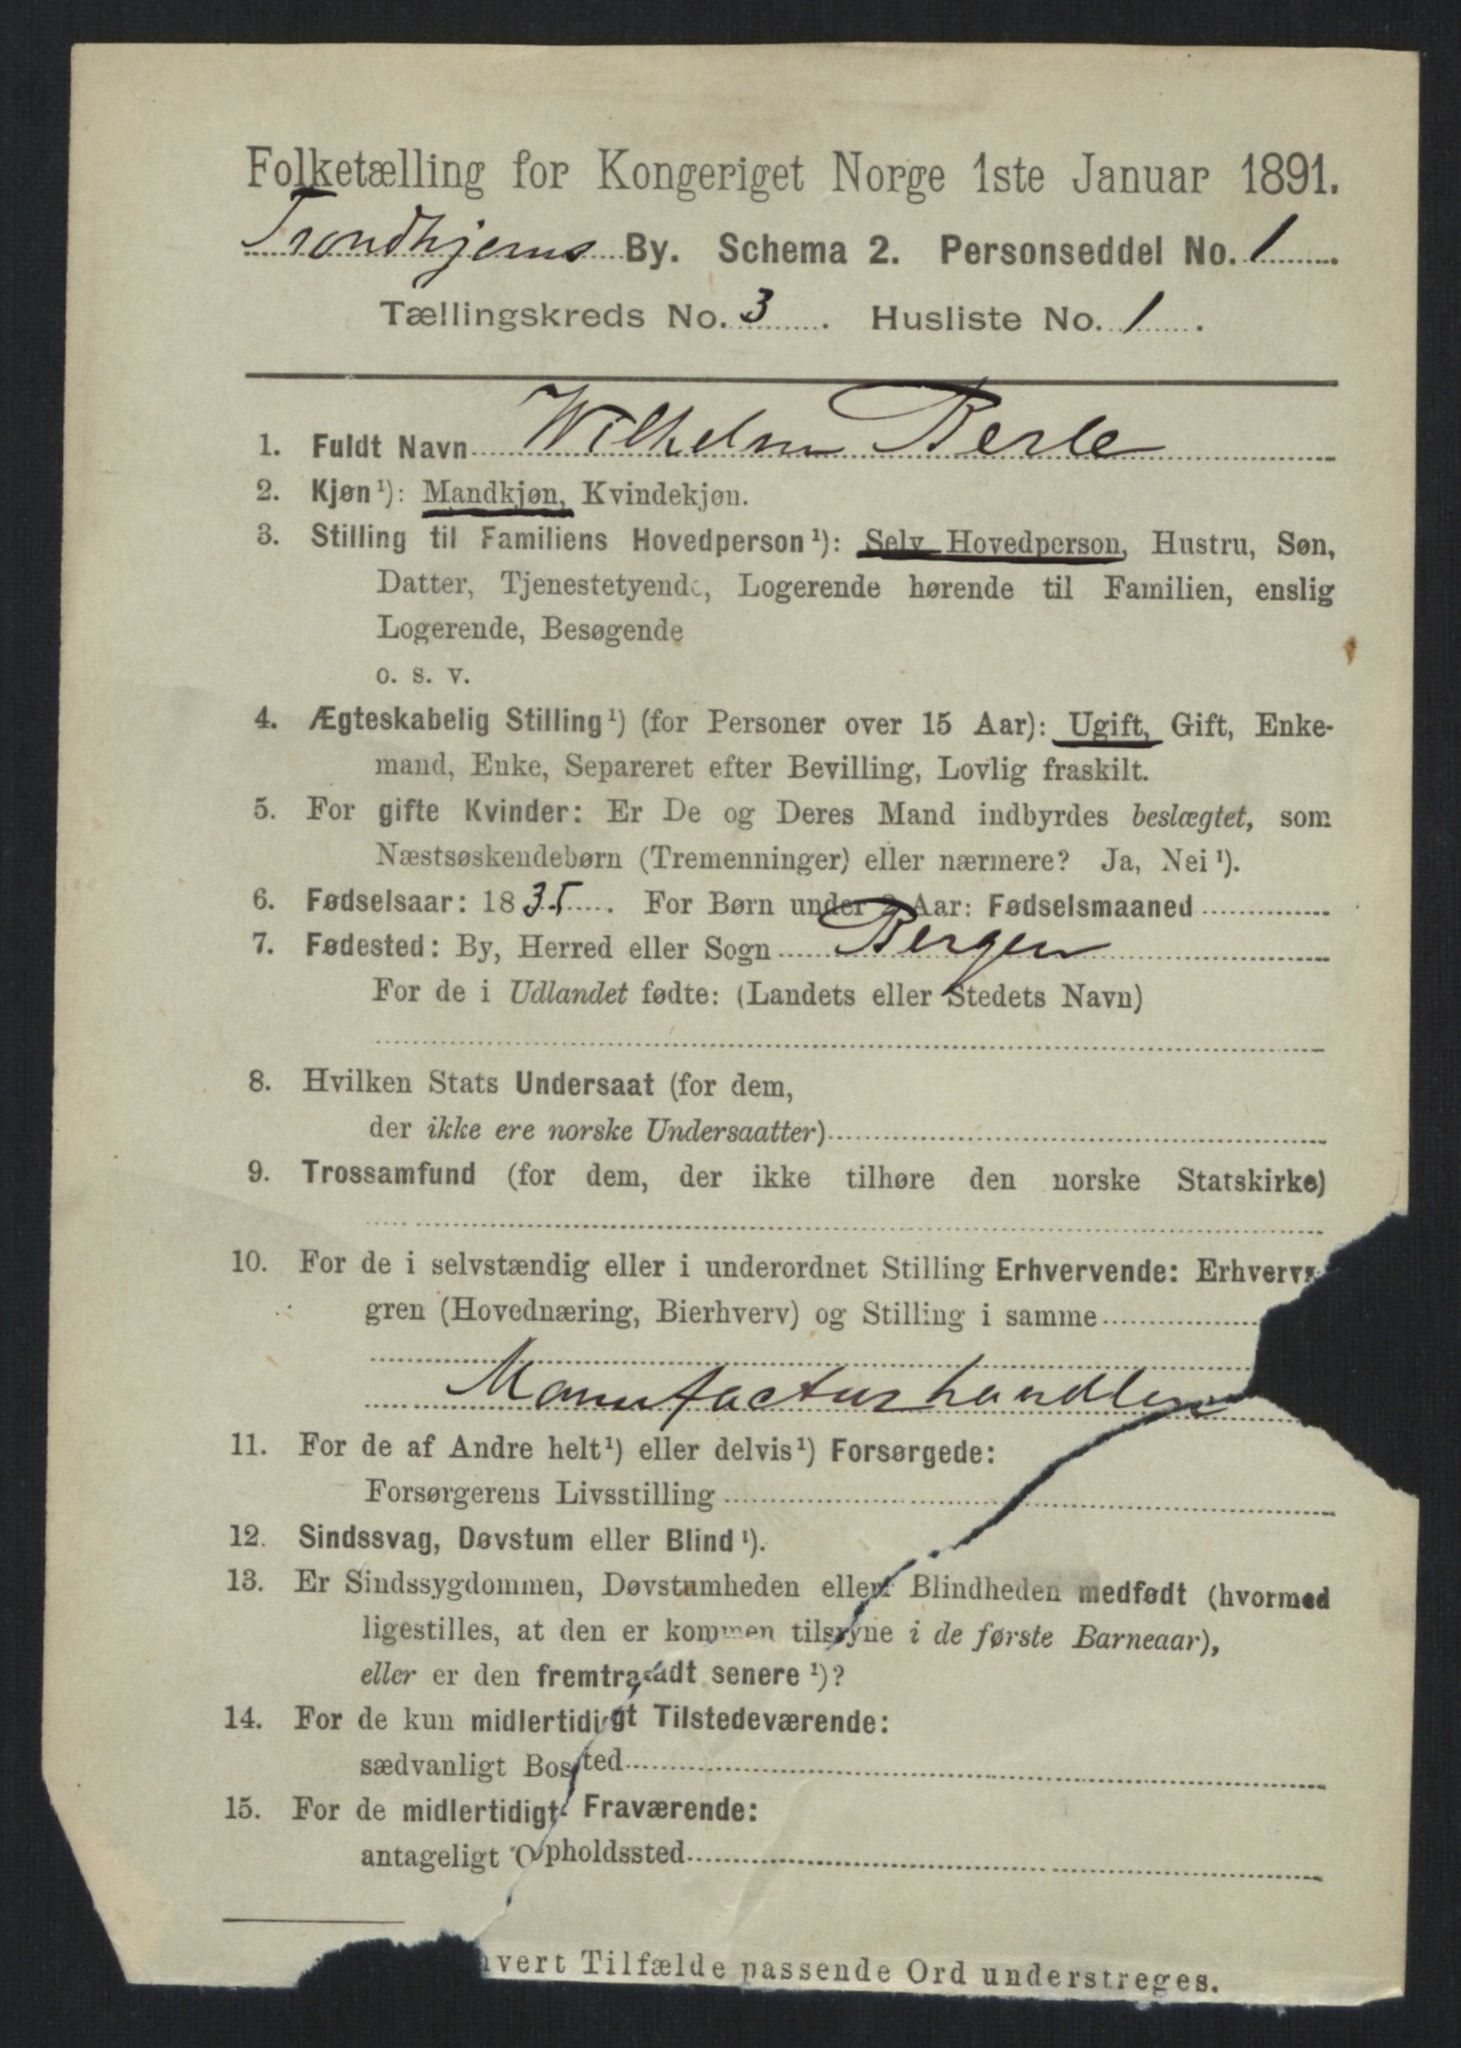 Folketælling for Kongeriget Norge 1ste Januar 1891.
Trondhjems By. Schema 2. Personseddel No. 1.
Tællingskreds No. 3. Husliste No. 1.
1. Fuldt Navn Wilhelm Berle
2. Kjøn¹): Mandkjøn, Kvindekjøn.
3. Stilling til Familiens Hovedperson¹): Selv Hovedperson, Hustru, Søn,
Datter, Tjenestetyende, Logerende hørende til Familien, enslig
Logerende, Besøgende
o. s. v.
4. Ægteskabelig Stilling¹) (for Personer over 15 Aar): Ugift, Gift, Enke-
mand, Enke, Separeret efter Bevilling, Lovlig fraskilt.
5. For gifte Kvinder: Er De og Deres Mand indbyrdes beslægtet, som
Næstsøskendebørn (Tremenninger) eller nærmere? Ja, Nei¹).
6. Fødselsaar: 1835. For Børn under 2 Aar: Fødselsmaaned
7. Fødested: By, Herred eller Sogn Bergen
For de i Udlandet fødte: (Landets eller Stedets Navn)
8. Hvilken Stats Undersaat (for dem,
der ikke ere norske Undersaatter)
9. Trossamfund (for dem, der ikke tilhøre den norske Statskirke)
10. For de i selvstændig eller i underordnet Stilling Erhvervende: Erhvervs-
gren (Hovednæring, Bierhverv) og Stilling i samme
Manufacturhandler
11. For de af Andre helt¹) eller delvis¹) Forsørgede:
Forsørgerens Livsstilling
12. Sindssvag, Døvstum eller Blind¹).
13. Er Sindssygdommen, Døvstumheden eller Blindheden medfødt (hvormed
ligestilles, at den er kommen tilsyne i de første Barneaar),
eller er den fremtraadt senere¹)?
14. For de kun midlertidigt Tilstedeværende:
sædvanligt Bosted
15. For de midlertidigt Fraværende:
antageligt Opholdssted
hvert Tilfælde passende Ord understreges.